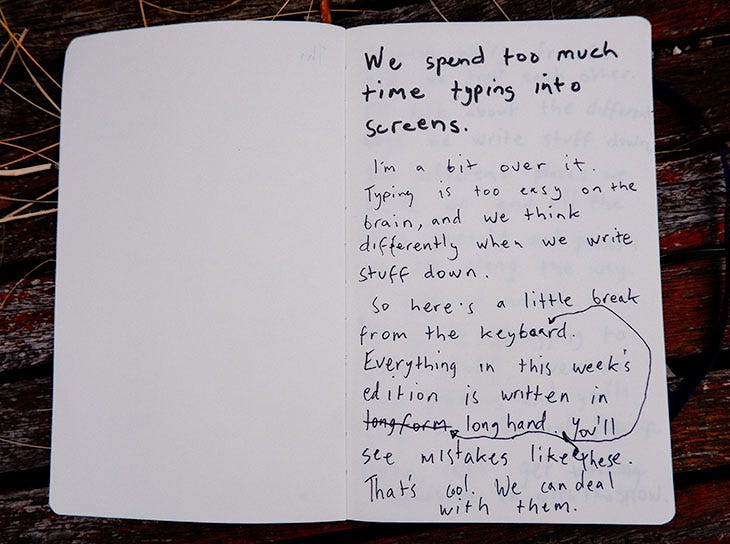 We spend too much
time typing into
screens.
I'm a bit over it.
Typing is too easy on the
brain, and we think
differently when we write
stuff down.
So here's a little break
from the keyboard.
Everything in this week's
edition is written in
longform longhand. You'll
see mistakes like these.
That's cool. We can deal
with them.